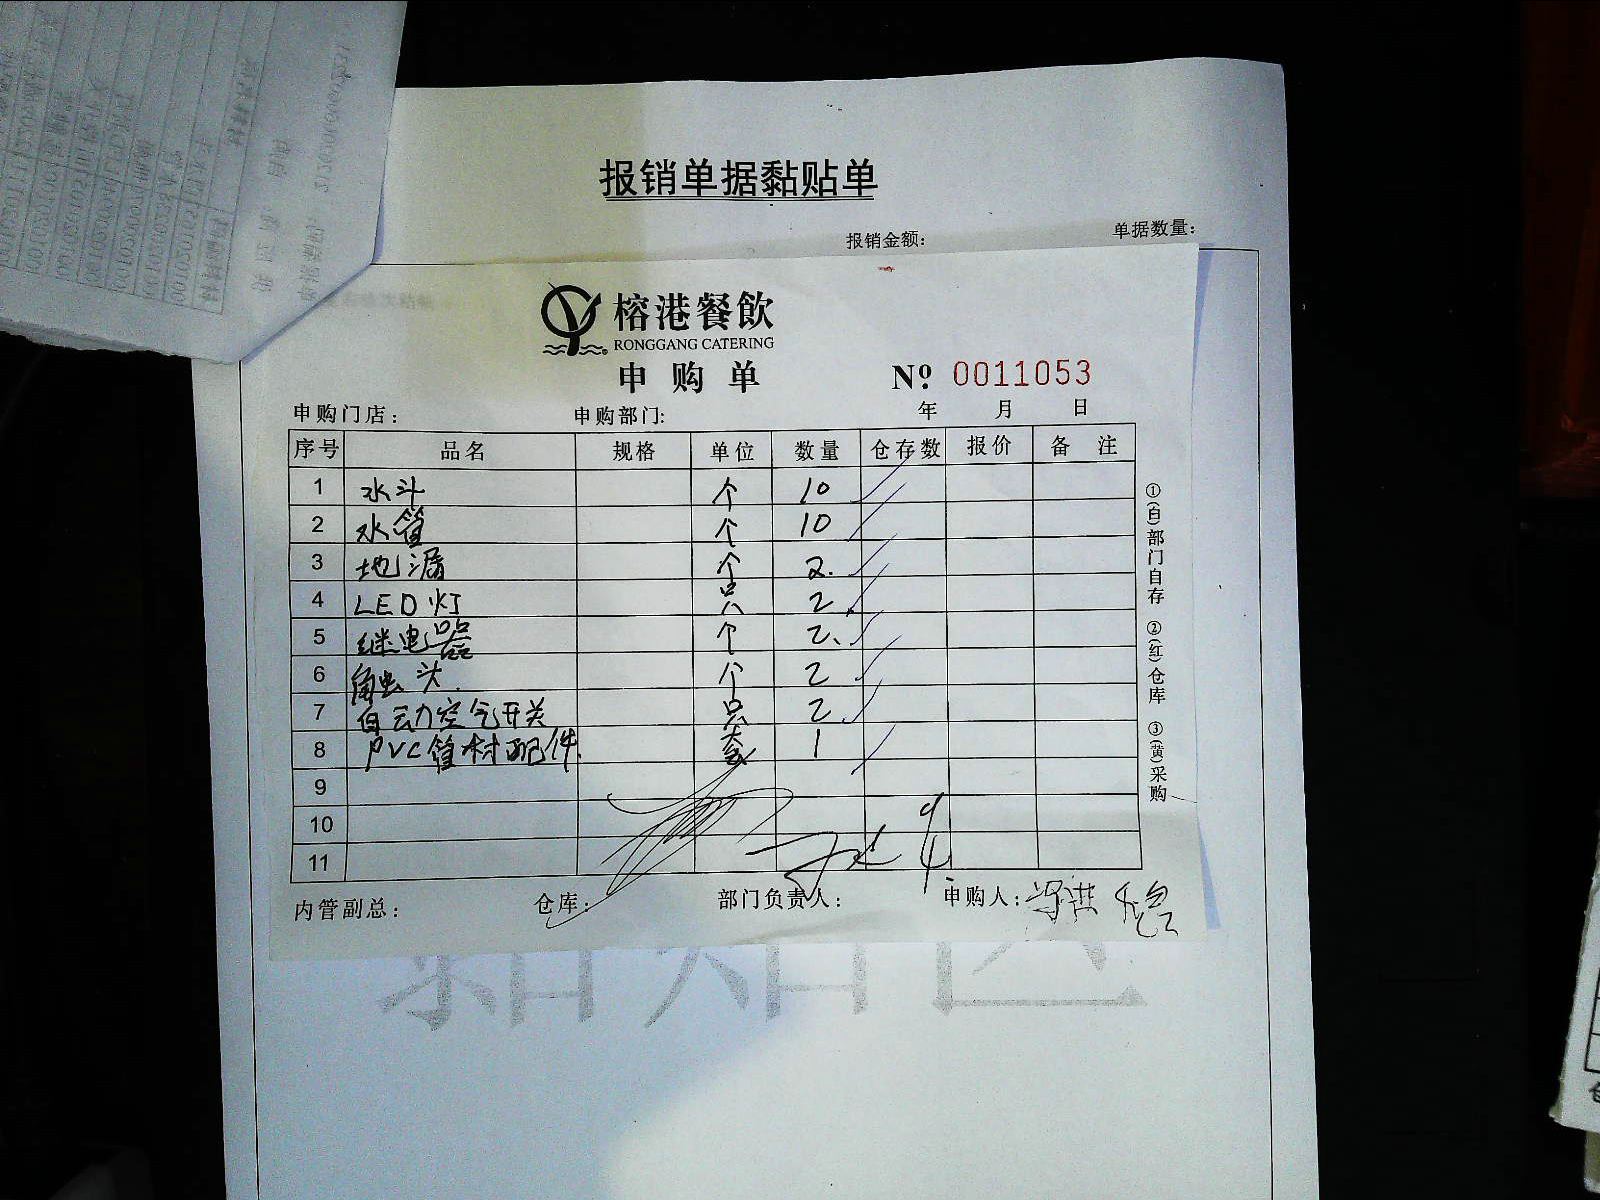 报销单据黏贴单
报销金额： 单据数量：
榕港餐飲
RONGGANG CATERING
申购单 Nº 0011053
申购门店： 申购部门： 年 月 日
序号 品名 规格 单位 数量 仓存数 报价 备注
1 水斗 个 10
2 水管 个 10
3 地漏 个 2.
4 LED灯 只 2
5 继电器 个 2.
6 触头. 个 2
7 自动空气开关 只 2
8 PVC管材配件 套 1
9
10
11
内管副总： 仓库： 部门负责人： 申购人：
①(白)部门自存 ②(红)仓库 ③(黄)采购
粘贴区